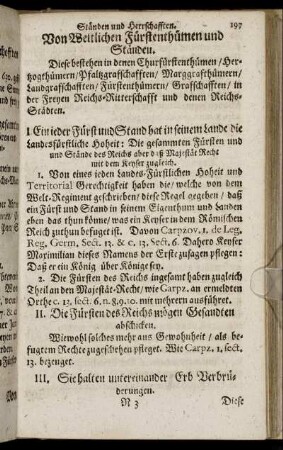 Ständen und Herrschafften. 197
Von Weltlichen Fürstenthümen und
Ständen.
Diese bestehen in denen Churfürstenthümen / Her-
tzogthümern / Pfaltzgrafschafften / Marggrafthümern /
Landgrafschafften / Fürstenthümern / Grafschafften / in
der Freyen Reichs-Ritterschafft und denen Reichs-
Städten.
I. Ein ieder Fürst und Stand hat in seinem Lande die
Landesfürstliche Hoheit: Die gesammten Fürsten und
und Stände des Reichs aber das Majestät Recht
mit dem Keyser zugleich.
1. Von eines ieden Landes-Fürstlichen Hoheit und
Territorial Gerechtigkeit haben die / welche von dem
Welt-Regiment geschrieben / diese Regel gegeben / daß
ein Fürst und Stand in seinem Eigenthum und Landen
eben das thun könne / was ein Keyser in dem Römischen
Reich zuthun befuget ist. Davon Carpzov. 1. de Leg.
Reg. Germ. Sect. 13. & c. 13. Sect. 6. Dahero Keyser
Maximilian dieses Namens der Erste zusagen pflegen:
Daß er ein König über Könige sey.
2. Die Fürsten des Reichs ingesamt haben zugleich
Theil an den Majestät-Recht / wie Carpz. an ermeldten
Orthe c. 13. sect. 6. n. 8. 9. 10. mit mehrern ausführet.
II. Die Fürsten des Reichs mögen Gesandten
abschicken.
Wiewohl solches mehr aus Gewohnheit / als be-
fugtem Rechte zugeschehen pfleget. Wie Carpz. 1. sect.
13. bezeuget.
III. Sie halten untereinander Erb Verbrü-
derungen.
N 3 Diese